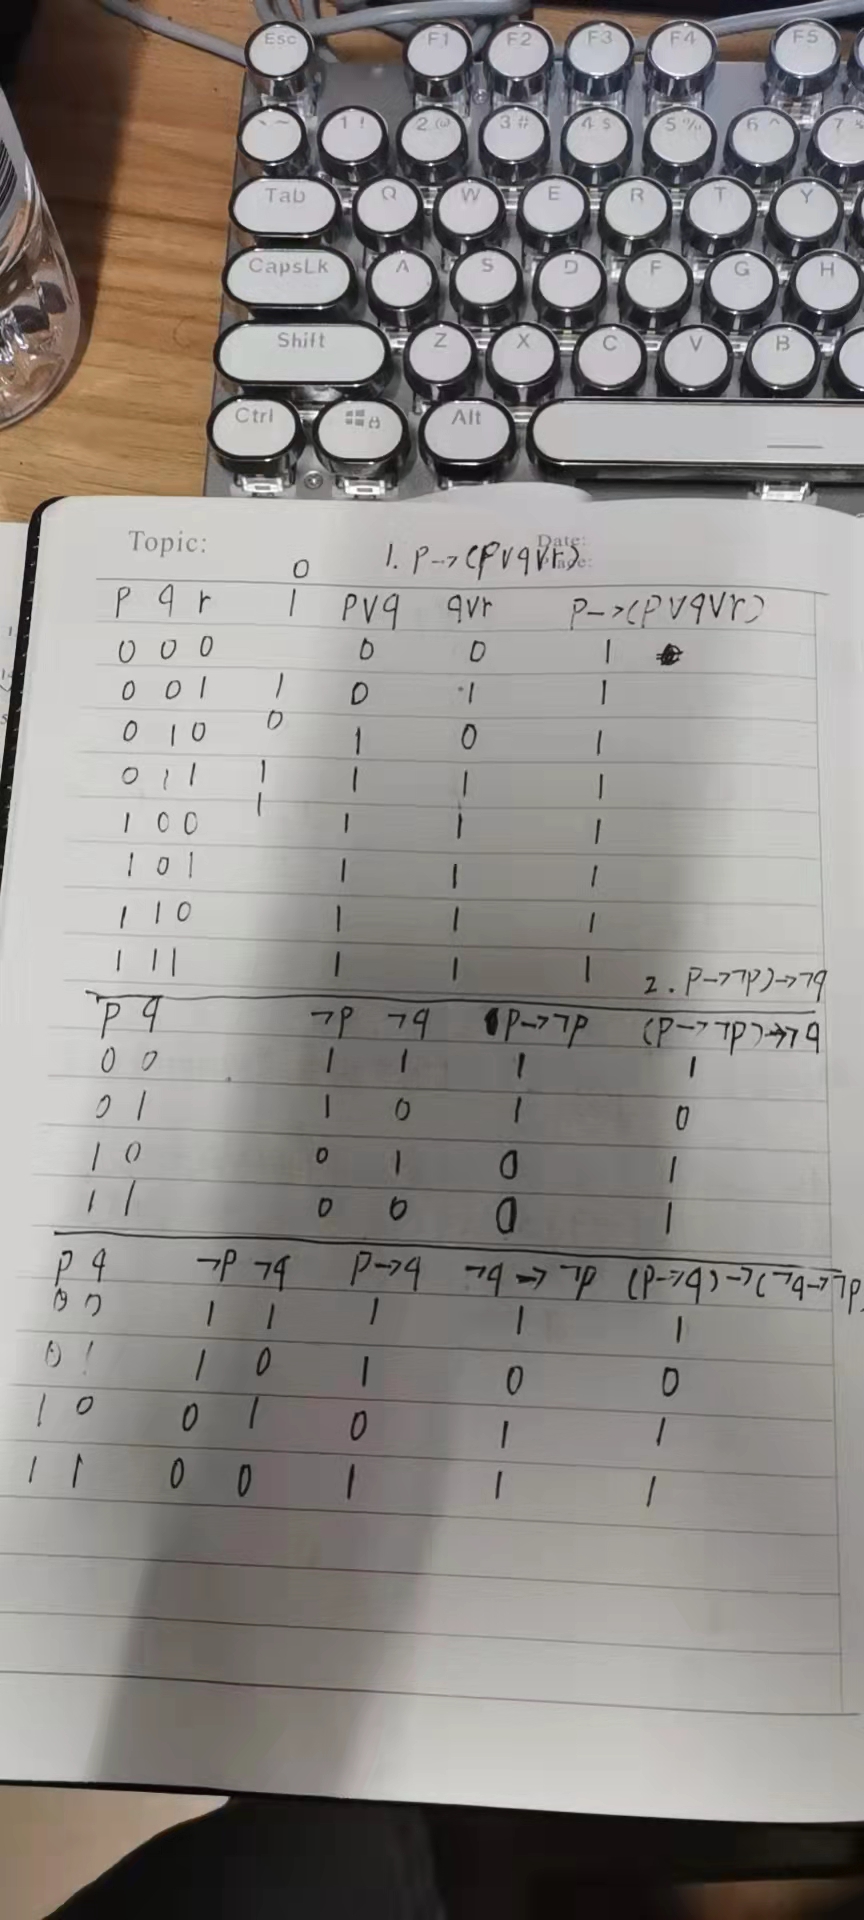 Esc F1 F2 F3 F4 F5
` ~ 1 ! 2 @ 3 # 4 $ 5 % 6 ^ 7
Tab Q W E R T Y
CapsLk A S D F G H
Shift Z X C V B
Ctrl Alt
Topic: Date:
Place:
0 1. P→(P∨q∨r)
P q r 1 P∨q q∨r P→(P∨q∨r)
0 0 0 0 0 1
0 0 1 1 0 1 1
0 1 0 0 1 0 1
0 1 1 1 1 1 1
1
1 0 0 1 1 1
1 0 1 1 1 1
1 1 0 1 1 1
1 1 1 1 1 1
2. P→¬P)→¬q
P q ¬P ¬q P→¬P (P→¬P)→¬q
0 0 1 1 1 1
0 1 1 0 1 0
1 0 0 1 0 1
1 1 0 0 0 1
P q ¬P ¬q P→q ¬q→¬P (P→q)→(¬q→¬P
0 0 1 1 1 1 1
0 1 1 0 1 0 0
1 0 0 1 0 1 1
1 1 0 0 1 1 1